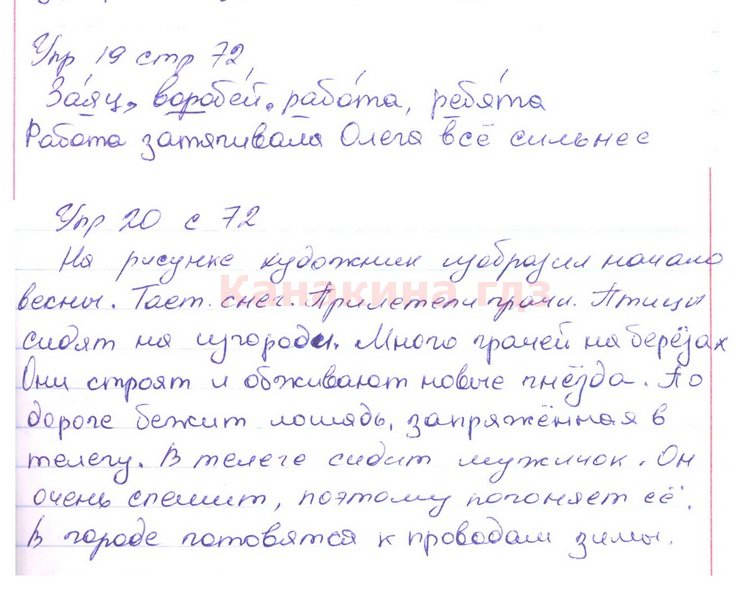 Упр 19 стр 72
Заяц, воробей. работа, ребята
Работа затягивала Олега всё сильнее
Упр 20 с 72
На рисунке художник изобразил начало
весны. Тает снег. Прилетели грачи. Птицы
сидят на изгороди. Много грачей на берёзах
Они строят и обживают новые гнёзда. По
дороге бежит лошадь, запряжённая в
телегу. В телеге сидит мужичок. Он
очень спешит, поэтому погоняет её.
В городе готовятся к проводам зимы.
Канакина гдз